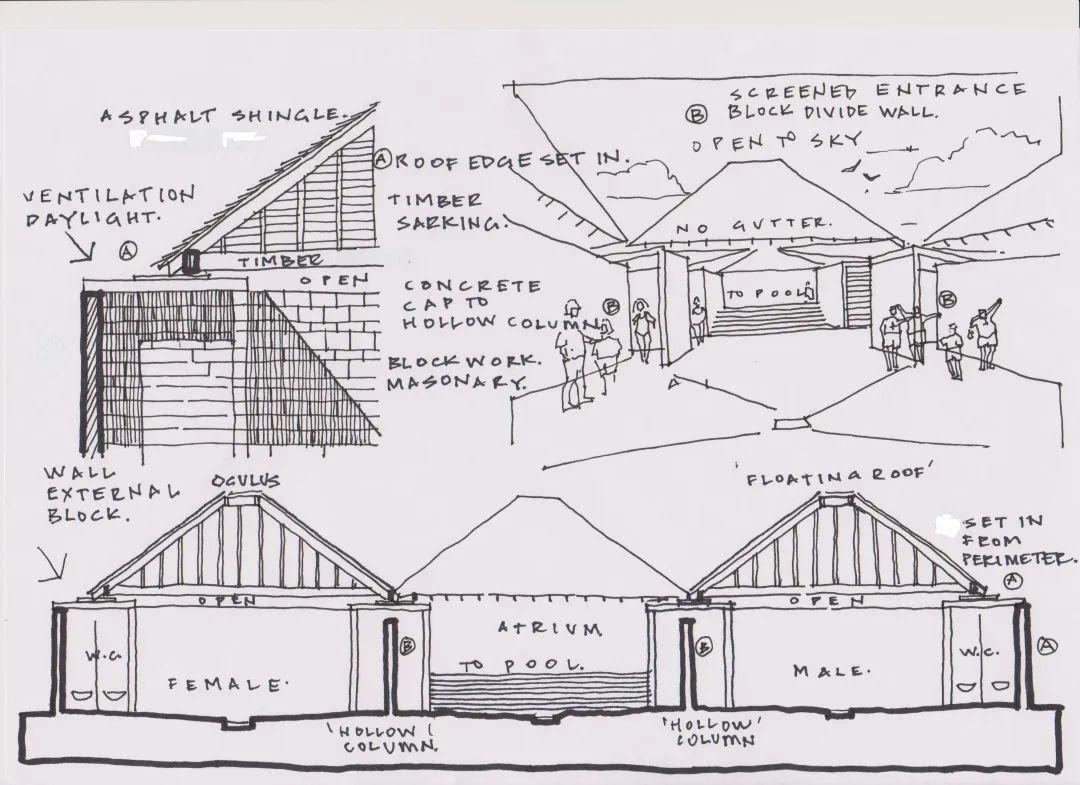 ASPHALT SHINGLE.
VENTILATION
DAYLIGHT.
A
A ROOF EDGE SET IN.
TIMBER
SARKING.
TIMBER
OPEN
CONCRETE
CAP TO
HOLLOW COLUMN
BLOCK WORK.
MASONARY.
SCREENED ENTRANCE
B BLOCK DIVIDE WALL.
OPEN TO SKY
NO GUTTER.
TO POOL
B
B
WALL
EXTERNAL
BLOCK.
OCULUS
'FLOATING ROOF'
SET IN
FROM
PERIMETER.
A
OPEN
OPEN
ATRIUM.
W.C.
B
B
W.C.
A
TO POOL.
MALE.
FEMALE.
'HOLLOW'
COLUMN.
'HOLLOW'
COLUMN